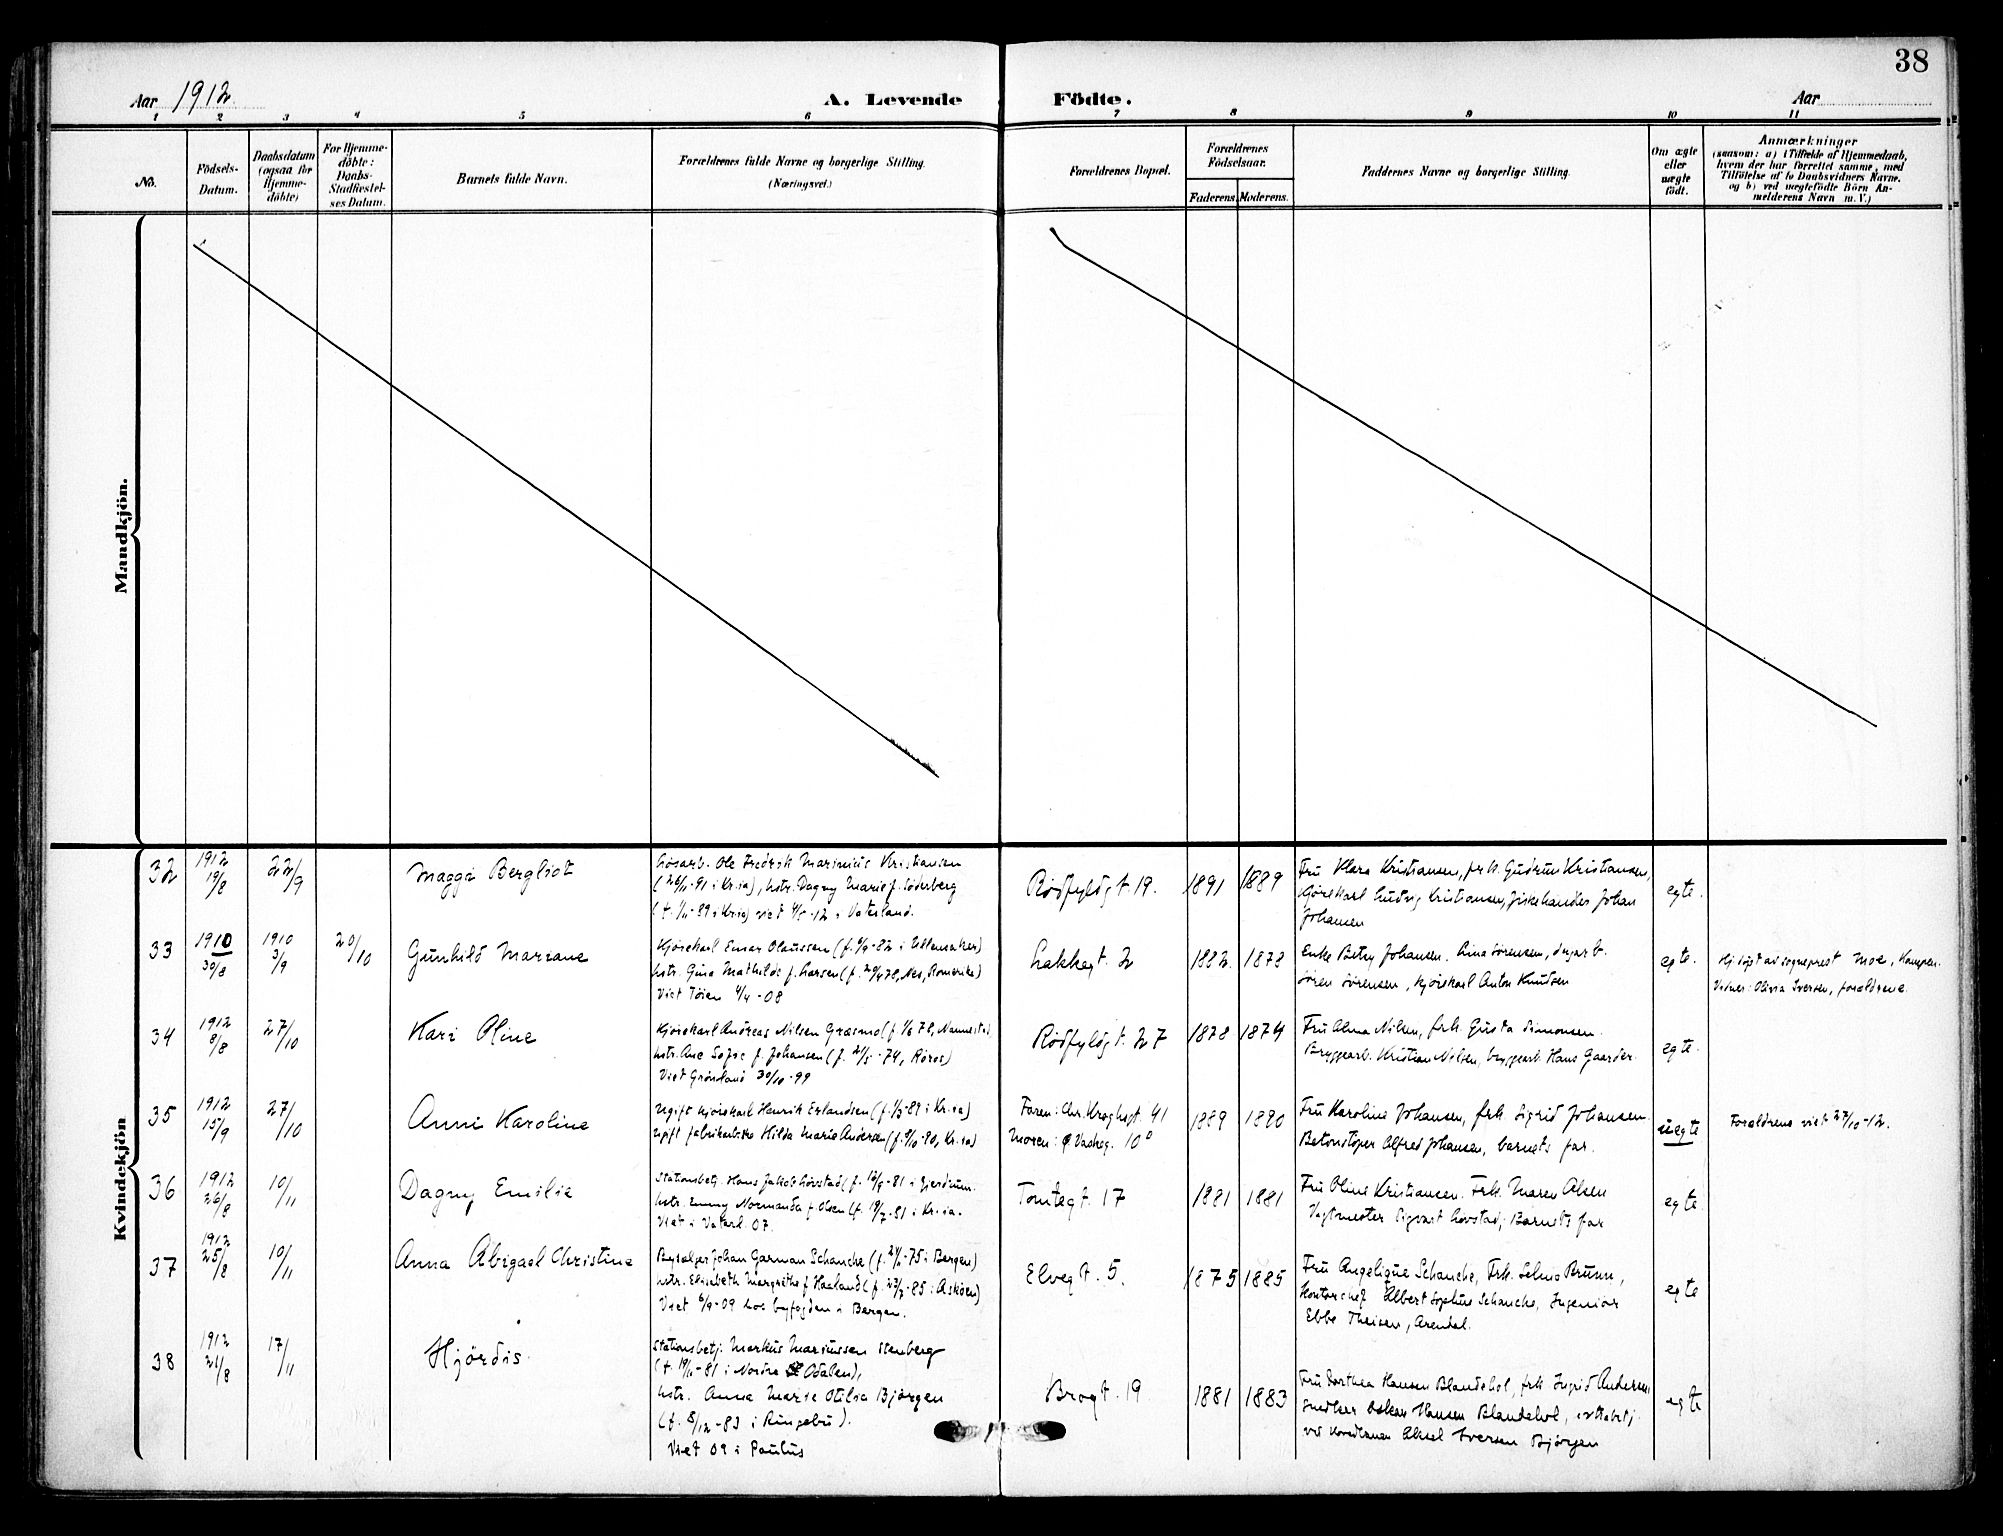 38
Aar 1912
A. Levende
Födte.
Aar
1 2 3 4 5 6 7 8 9 10 11
No.
Födsels-
Datum.
Daabsdatum
(ogsaa for
Hjemme-
döbte)
For Hjemme-
döbte:
Daabs-
Stadfæstel-
ses Datum.
Barnets fulde Navn.
Forældrenes fulde Navne og borgerlige Stilling.
(Næringsvei.)
Forældrenes Bopæl.
Forældrenes
Födselsaar.
Faderens. Moderens.
Faddernes Navne og borgerlige Stilling.
Om ægte
eller
uægte
födt.
Anmærkninger
(saasom: a) i Tilfælde af Hjemmedaab,
hvem der har forrettet samme, med
Tilföielse af to Daabsvidners Navne.
og b) ved uægtefödte Börn An-
melderens Navn m. V.)
Mandkjön.
Kvindekjön
32
1912
19/8
22/9
Maggi Bergliot
Ole Fredrik Marinius Kristiansen
(26/11-91 i Kr.ia), hstr. Dagny Marie f. Söderberg
-89 i Kr.ia) viet 4/5-12 i Vaterland.
Rödfyldgt. 19.
1891
1889
Fru Klara Kristiansen, frk. Gudrun Kristiansen,
Kjörekarl Ludvig Kristiansen, fiskehandler Johan
Johansen
egte.
33
1910
30/8
1910
3/9
20/10
Gunhild Mariane
Kjörekarl Einar Olaussen (f. 9/9-82 i Ullensaker)
hstr. Gina Mathilde f. Larsen (f. 29/4 78, Nes, Romerike)
Viet Töien 4/4-08
Lakkegt. 2
1882.
1878
Enke Betzy Johansen. Lina Sörensen,
Sören Sörensen, Kjörekarl Anton Knutsen
egte.
Hj.döpt av sogneprest Moe, Kampen.
Vidner: Olivia Iversen, forældrene.
34
1912
8/8
27/10
Kari Oline
Kjörekarl Andreas Nilsen Græsmo (f. 1/6 78, Nannestad)
hstr. Ane Sofie f. Johansen (f. 21/5-74, Röros)
Viet Grönland 30/10-99
Rödfyldgt. 27
1878
1874
Fru Alma Nilsen, frk. Gusta Simonsen.
Bryggearb. Kristian Nilsen, bryggearb. Hans Gaarder.
egte.
35
1912
15/9
27/10
Anni Karoline
Ugift Kjörekarl Henrik Erlandsen (f. 1/3-89 i Kr.ia)
Ugift fabrikarbske Hilda Marie Andersen (f. 9/10-90, Kr.ia)
Faren: Chr. Kroghsgt. 41
Moren: Ø Vaskeg. 10
1889
1890
Fru Karoline Johansen, frk. Sigrid Johansen.
Betonstöper Alfred Johansen, barnets far.
uegte
Forældrene viet 27/10-12.
36
1912
26/8
10/11
Dagny Emilie
Stationsbetj. Hans Jakob Lövstad (f. 12/9-81 i Gjerdrum.
hstr. Emmy Normanda f. Olsen (f. 19/7-81 i Kr.ia.
Viet i Vaterl. 07.
Tomtegt. 17
1881
1881
Fru Oline Kristiansen. Frk. Maren Olsen
Vagtmester Sigvart Lovstad, Barnets far
egte
37
1912
25/8
10/11
Anna Abigael Christine
Johan Garman Schanche (f. 21/1-75 i Bergen)
hstr. Elisabeth Margrethe f. Haaland (f. 23/7-85 i Asköen)
Viet 6/9-09 hos byfogden i Bergen.
Elvegt. 5.
1875
1885
Fru Angelique Schanche, Frk. Selma Bruun,
Kontorchef Albert Sophus Schanche, Ingeniör
Ebbe Theisen, Arendal.
egte
38
1912
21/8
17/11
Hjördis.
Stationsbetj. Markus Mariussen Stenberg
(f. 19/11-81 i Nordre Odalen),
hstr. Anna Marie Otilia Björgen
(f. 8/12-83 i Ringebu).
Viet 09 i Paulus
Brogt. 19.
1881
1883
Fru Dorthea Hansen Blandehol, frk. Ingrid Andersen
Snedker Oskar Hansen Blandehol,
ved Aksel Iversen Björgen
egte